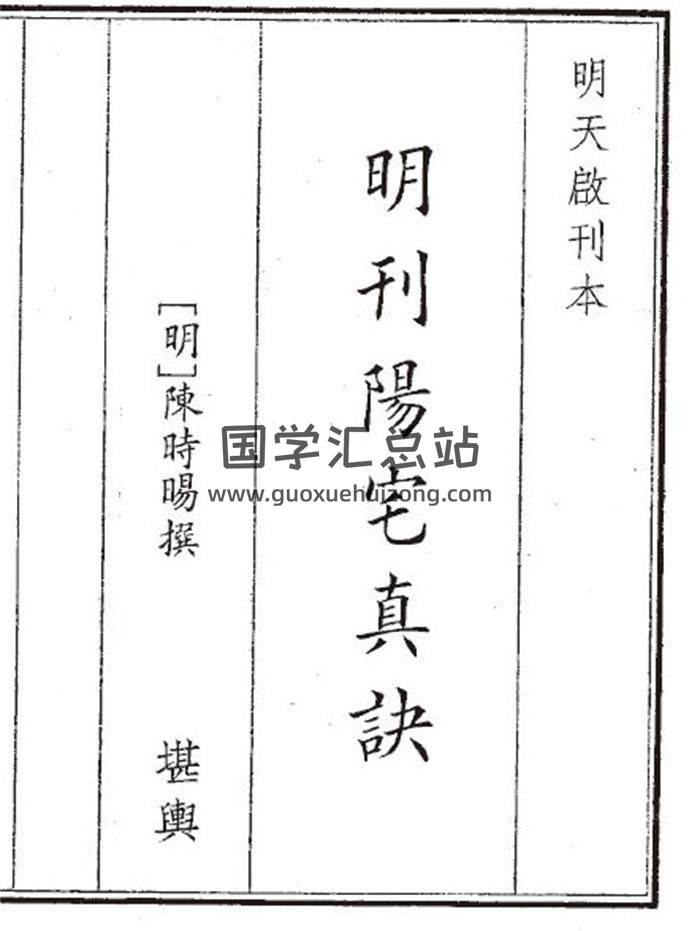 明天啟刊本
明刊陽宅真訣
［明］陳時暘撰
堪輿
国学汇总站
www.guoxuehuizong.com